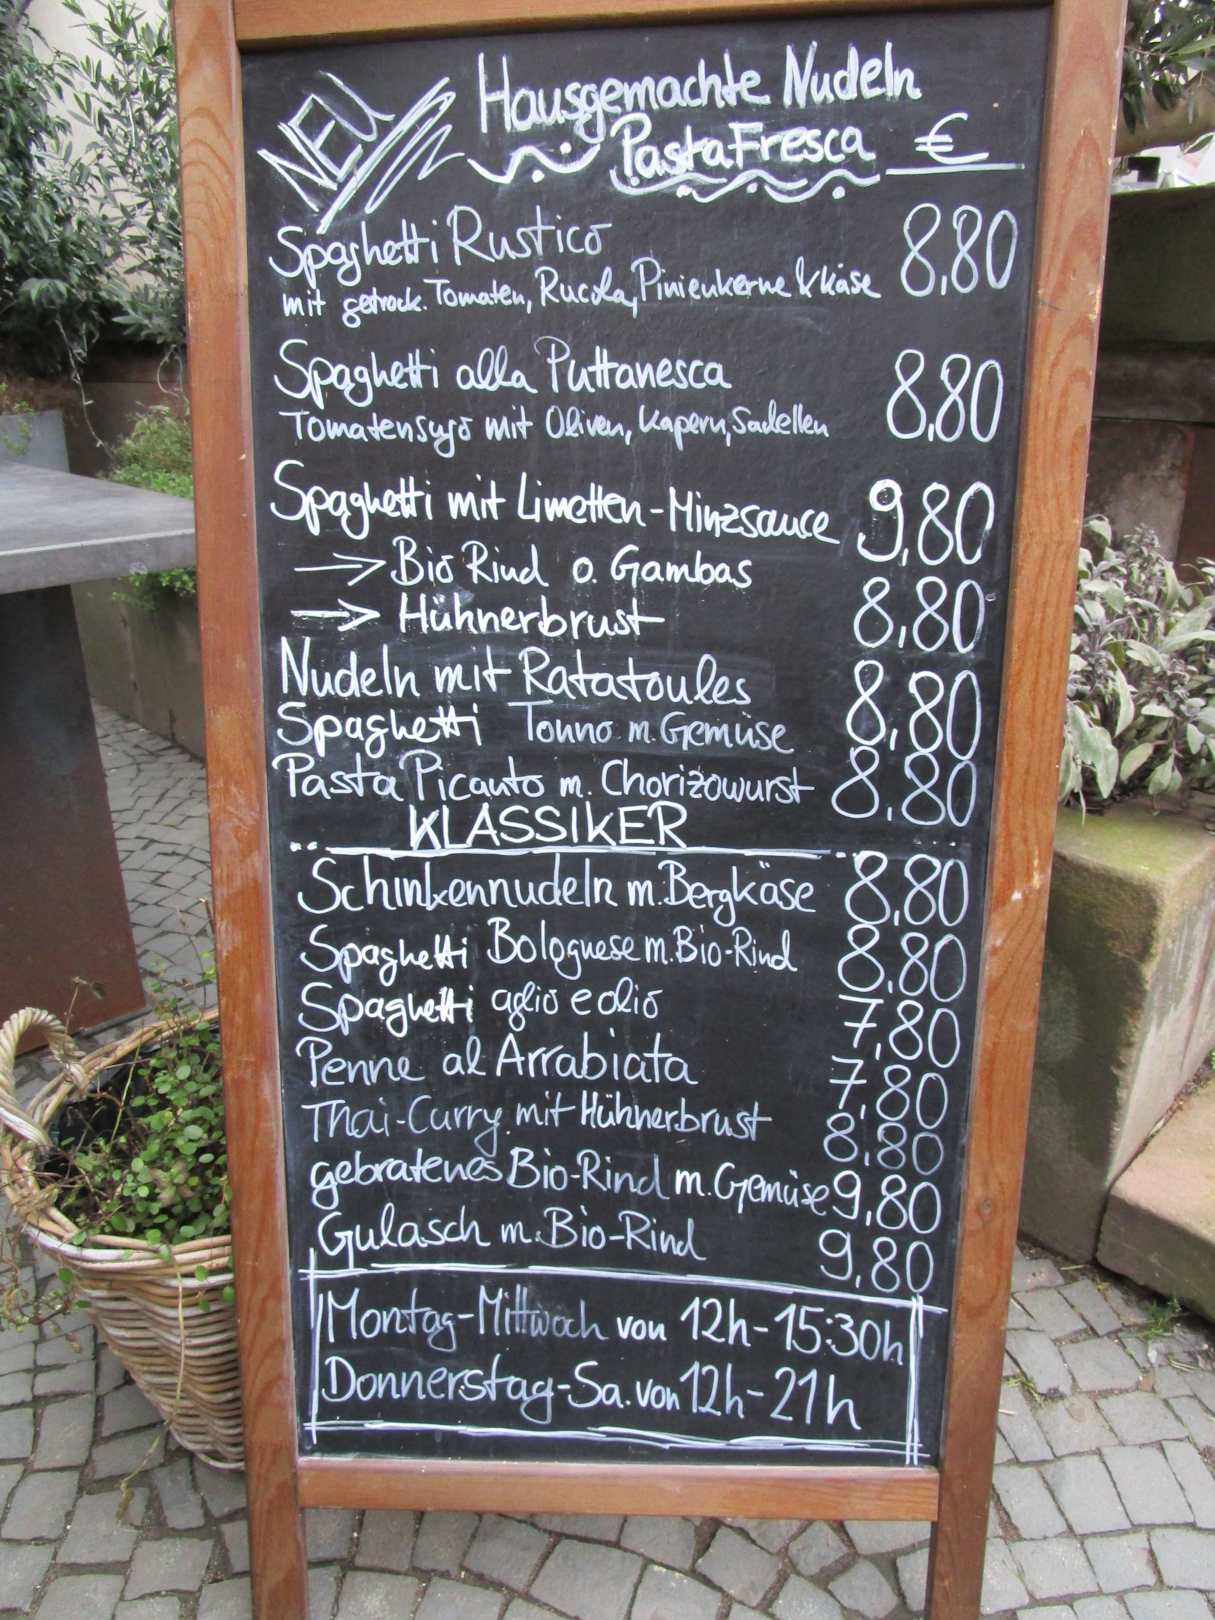 NEU
Hausgemachte Nudeln
Pasta Fresca €
Spaghetti Rustico 8,80
mit getrock. Tomaten, Rucola, Pinienkerne & Käse
Spaghetti alla Puttanesca 8,80
Tomatensugo mit Oliven, Kapern, Sadellen
Spaghetti mit Limetten-Minzsauce 9,80
→ Bio Rind o. Gambas
→ Hühnerbrust 8,80
Nudeln mit Ratatoules 8,80
Spaghetti Tonno m. Gemüse
Pasta Picanto m. Chorizowurst 8,80
KLASSIKER
Schinkennudeln m. Bergkäse 8,80
Spaghetti Bolognese m. Bio-Rind 8,80
Spaghetti aglio e olio 7,80
Penne al Arrabiata 7,80
Thai-Curry mit Hühnerbrust 8,80
gebratenes Bio-Rind m. Gemüse 9,80
Gulasch m. Bio-Rind 9,80
Montag-Mittwoch von 12h-15:30h
Donnerstag-Sa. von 12h-21h